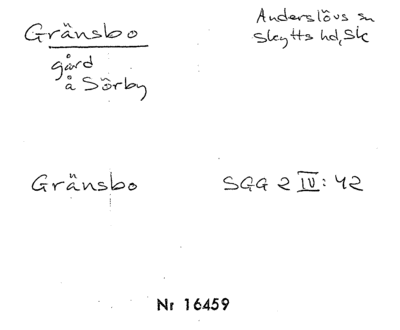 Gränsbo
Anderslövs sn
Skytts hd, Sk
gård
å Sörby
Gränsbo
SGG 2 IV: 42
Nr 16459